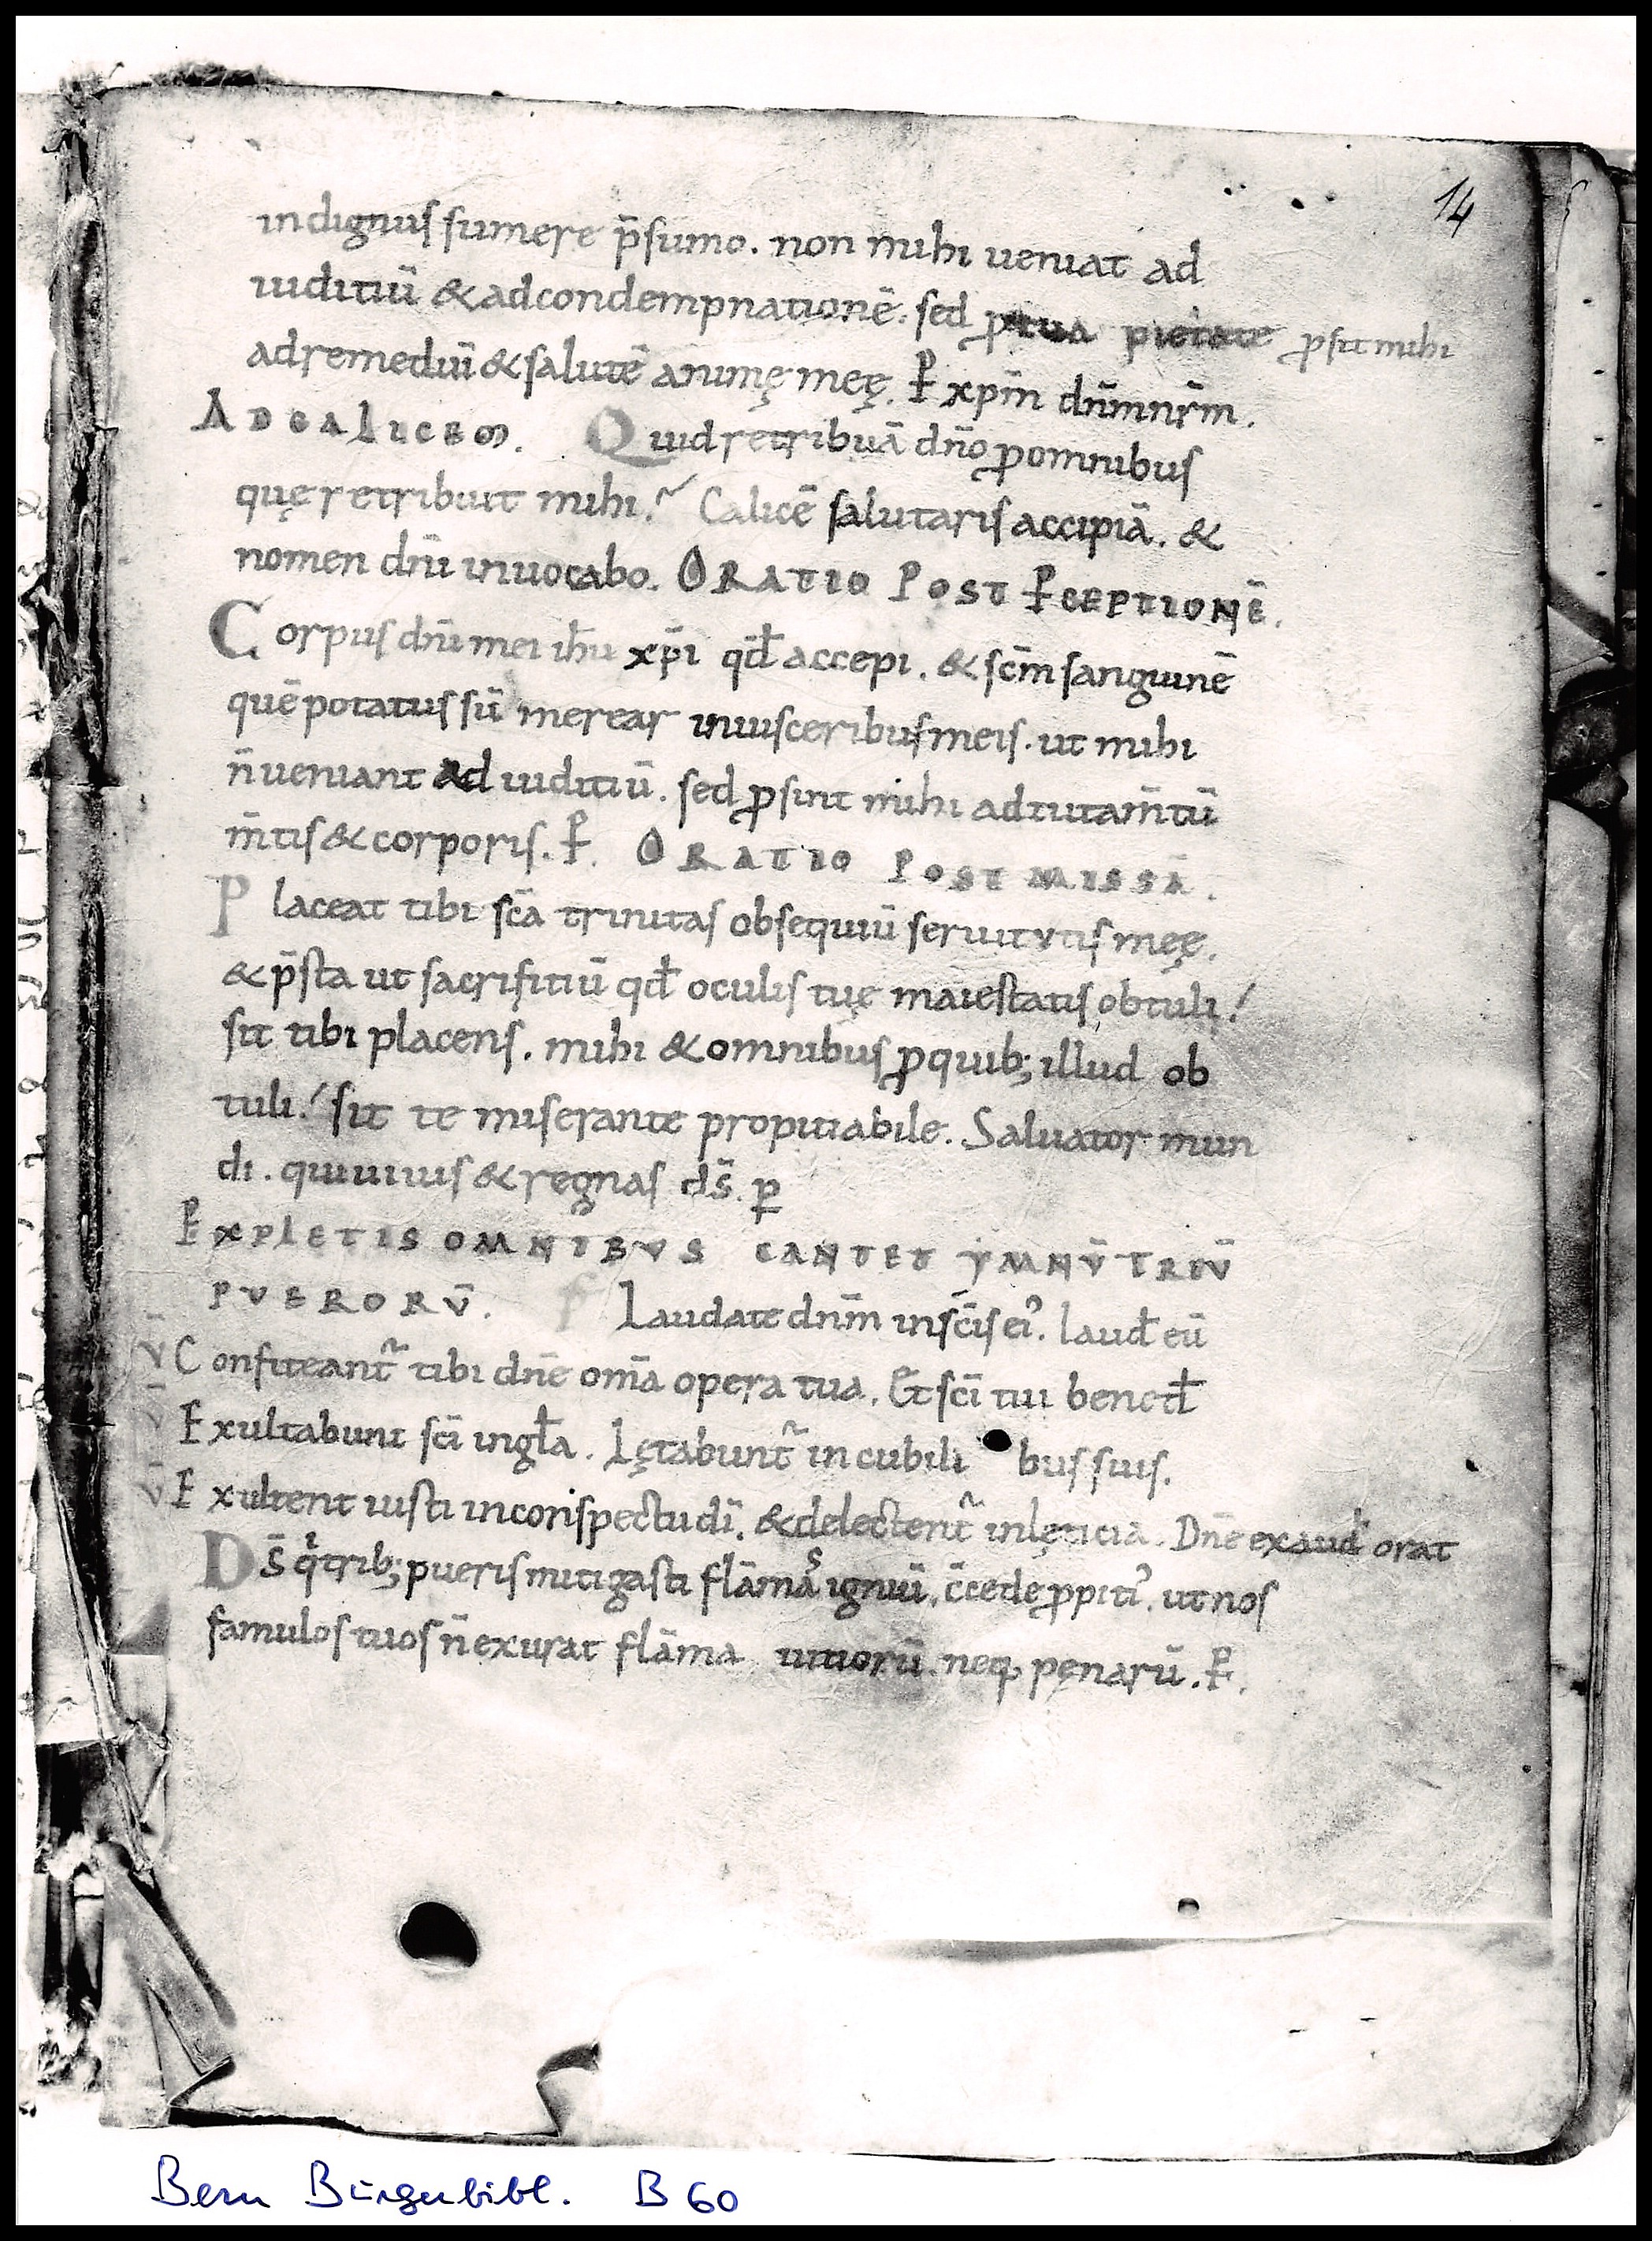 14
indignus sumere p̄sumo. non mihi ueniat ad
iuditiū & adcondempnationē. sed ꝓ tua pietate ꝓsit mihi
ad remediū & salutē animę meę. P̱ xp̄m dn̄m nr̄m.
AD CALICEM. Quid retribuā dn̄o ꝓ omnibus
quę retribuit mihi? Calicē salutaris accipiā. &
nomen dn̄i inuocabo. ORATIO POST P̱CEPTIONĒ.
Corpus dn̄i mei ih̄u xp̄i qđ accepi. & sc̄m sanguinē
quē potatus sū merear inuisceribus meis. ut mihi
n̄ ueniant ad iuditiū. sed ꝓsint mihi ad tutam̄tū
m̄tis & corporis. P̱. ORATIO POST MISSĀ.
Placeat tibi sc̄a trinitas obsequiū seruitutis meę.
& p̄sta ut sacrifitiū qđ oculis tuę maiestatis obtuli!
sit tibi placens. mihi & omnibus ꝓ quib; illud ob
tuli! sit te miserante propitiabile. Saluator mun
di. qui uiuis & regnas ds̄. p̱
EXPLETIS OMNIBVS CANTET YMNV̄ TRIV̄
PVERORV̄. Laudate dn̄m in sc̄is ei᾿. lauđ eū
v̄ Confiteant᷑ tibi dn̄e om̄a opera tua. Et sc̄i tui beneđ
v̄ Exultabunt sc̄i in gɫa. Lętabunt᷑ in cubili bus suis.
v̄ Exultent iusti in conspectu dī. & delectent᷑ in lęticia. Dn̄e exaud orat
Ds̄ qͥ trib; pueris mitigasti flāmaˢ igniū. c̄cede ꝓpiti᾿. ut nos
famulos tuos n̄ exurat flāma uitiorū. neq; pęnarū. P̱.
Bern Burgerbibl. B 60